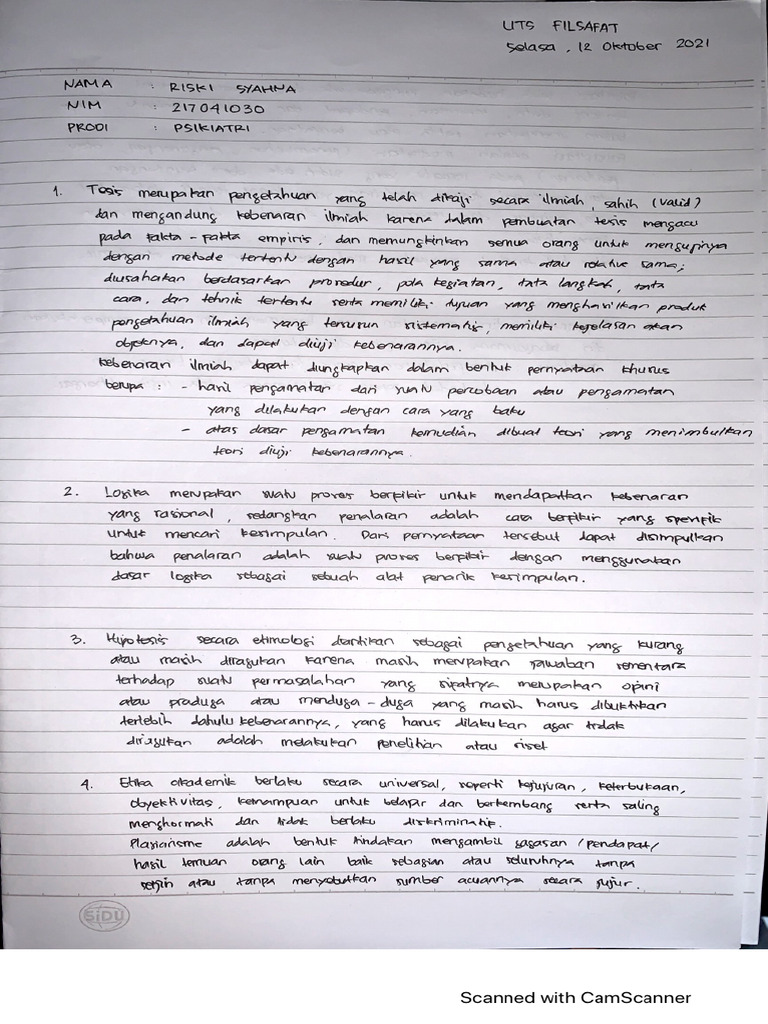 UTS FILSAFAT
Selasa, 12 Oktober 2021
NAMA : RISKI SYAHNA
NIM : 217041030
PRODI : PSIKIATRI
1. Tesis merupakan pengetahuan yang telah dikaji secara ilmiah, sahih (valid)
dan mengandung kebenaran ilmiah karena dalam pembuatan tesis mengacu
pada fakta-fakta empiris, dan memungkinkan semua orang untuk mengujinya
dengan metode tertentu dengan hasil yang sama atau relative sama;
diusahakan berdasarkan prosedur, pola kegiatan, tata langkah, tata
cara, dan tehnik tertentu serta memiliki tujuan yang menghasilkan produk
pengetahuan ilmiah yang tersusun sistematis, memiliki kejelasan akan
objeknya, dan dapat diuji kebenarannya.
kebenaran ilmiah dapat diungkapkan dalam bentuk pernyataan khusus
berupa : - hasil pengamatan dari suatu percobaan atau pengamatan
yang dilakukan dengan cara yang baku
- atas dasar pengamatan kemudian dibuat teori yang menimbulkan
teori diuji kebenarannya.
2. Logika merupakan suatu proses berfikir untuk mendapatkan kebenaran
yang rasional, sedangkan penalaran adalah cara berfikir yang spesifik
untuk mencari kesimpulan. Dari pernyataan tersebut dapat disimpulkan
bahwa penalaran adalah suatu proses berfikir dengan menggunakan
dasar logika sebagai sebuah alat penarik kesimpulan.
3. Hipotesis secara etimologi diartikan sebagai pengetahuan yang kurang
atau masih diragukan karena masih merupakan jawaban sementara
terhadap suatu permasalahan yang sifatnya merupakan opini
atau praduga atau menduga-duga yang masih harus dibuktikan
terlebih dahulu kebenarannya, yang harus dilakukan agar tidak
diragukan adalah melakukan penelitian atau riset
4. Etika akademik berlaku secara universal, seperti kejujuran, keterbukaan,
obyektivitas, kemampuan untuk belajar dan berkembang serta saling
menghormati dan tidak berlaku diskriminatif.
Plagiarisme adalah bentuk tindakan mengambil gagasan/pendapat/
hasil temuan orang lain baik sebagian atau seluruhnya tanpa
seijin atau tanpa menyebutkan sumber acuannya secara jujur.
SiDU
Scanned with CamScanner